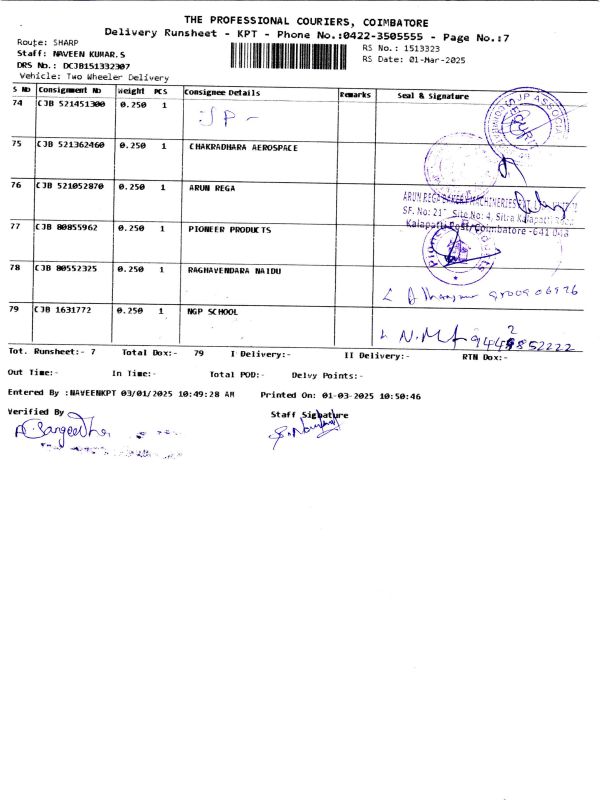 THE PROFESSIONAL COURIERS, COIMBATORE
Delivery Runsheet - KPT - Phone No.:0422-3505555 - Page No.:7
Route: SHARP
Staff: NAVEEN KUMAR.S
DRS No.: DCJB151332307
Vehicle: Two Wheeler Delivery
RS No.: 1513323
RS Date: 01-Mar-2025
S No Consignment No Weight PCS Consignee Details Remarks Seal & Signature
74 CJB 521451300 0.250 1 :JP-
75 CJB 521362460 0.250 1 CHAKRADHARA AEROSPACE
76 CJB 521052870 0.250 1 ARUN REGA
ARUN REGA BAKERY MACHINERIES
SF. No: 21 Site No: 4, Sitra Kalapatti Road
Kalapatti Post, Coimbatore -641 048
77 CJB 80855962 0.250 1 PIONEER PRODUCTS
78 CJB 80552325 0.250 1 RAGHAVENDARA NAIDU
79 CJB 1631772 0.250 1 NGP SCHOOL
Tot. Runsheet:- 7 Total Dox:- 79 I Delivery:- II Delivery:- RTN Dox:-
Out Time:- In Time:- Total POD:- Delvy Points:-
Entered By :NAVEENKPT 03/01/2025 10:49:28 AM Printed On: 01-03-2025 10:50:46
Verified By Staff Signature